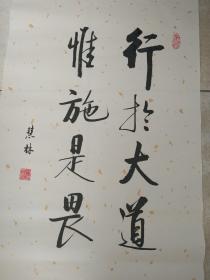 行於大道
惟施是畏
慧林